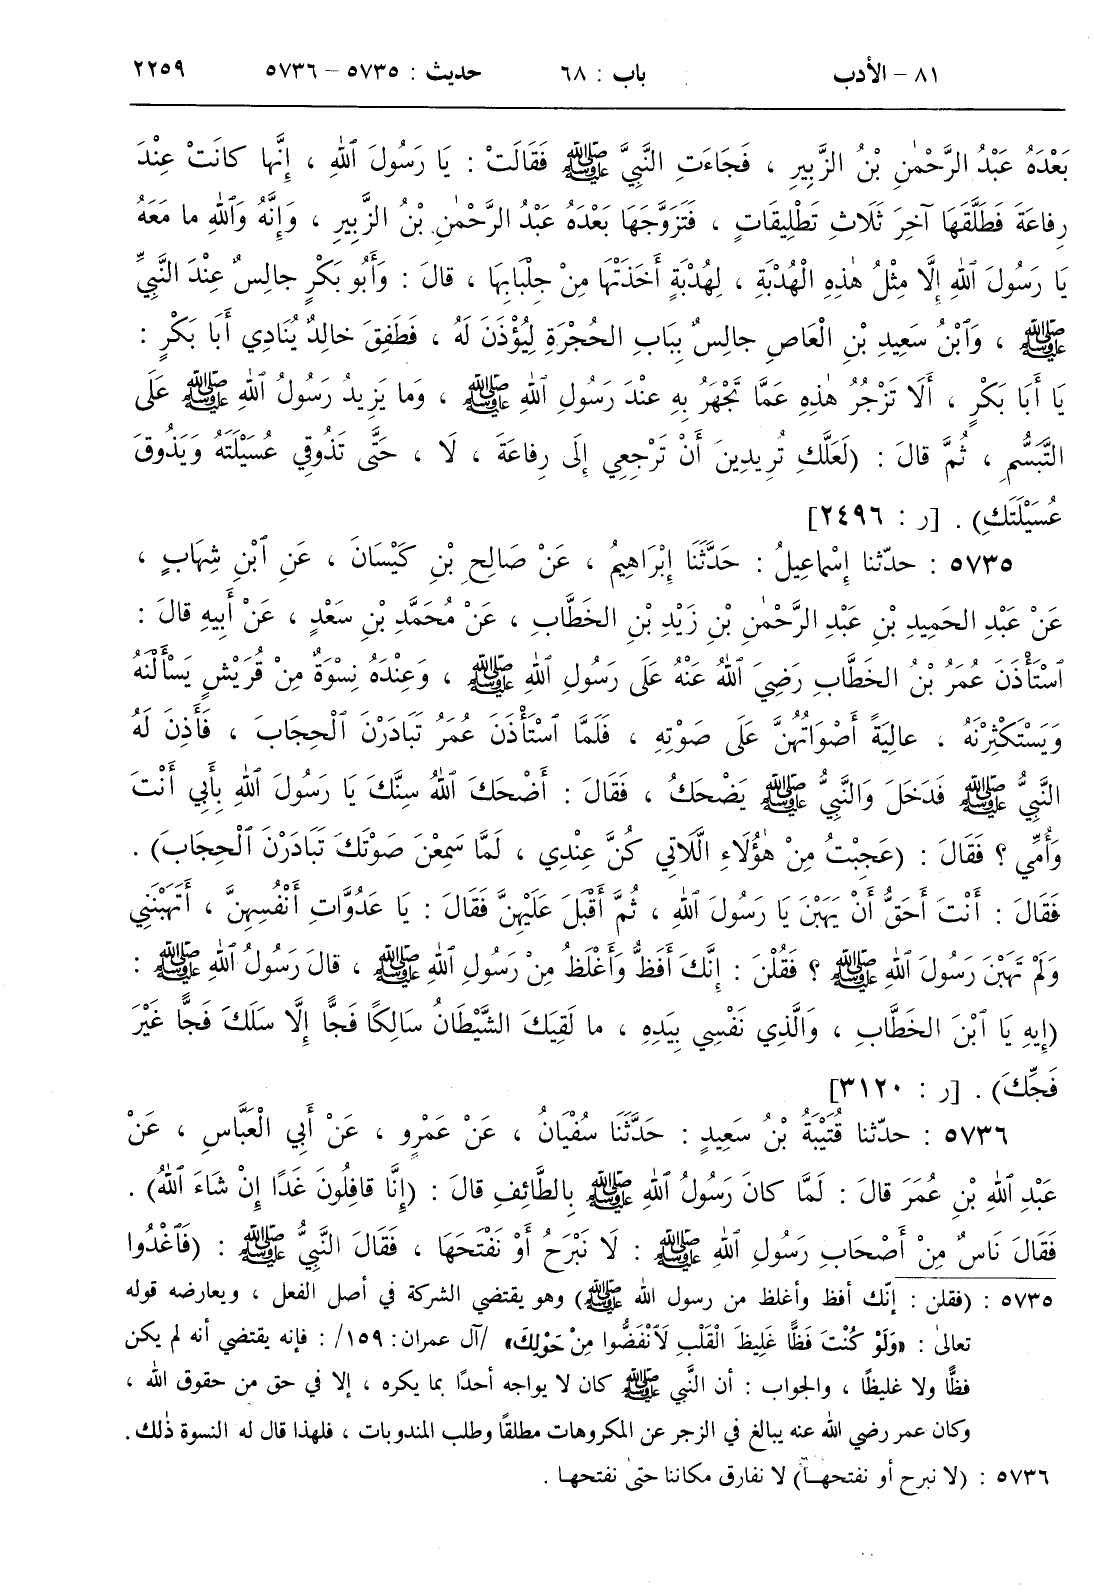 ٨١ – الأدب باب : ٦٨ حديث : ٥٧٣٥ – ٥٧٣٦ ٢٢٥٩
بَعْدَهُ عَبْدُ الرَّحْمٰنِ بْنُ الزَّبِيرِ ، فَجَاءَتِ النَّبِيَّ ﷺ فَقَالَتْ : يَا رَسُولَ ٱللهِ ، إِنَّهَا كَانَتْ عِنْدَ
رِفَاعَةَ فَطَلَّقَهَا آخِرَ ثَلَاثِ تَطْلِيقَاتٍ ، فَتَزَوَّجَهَا بَعْدَهُ عَبْدُ الرَّحْمٰنِ بْنُ الزَّبِيرِ ، وَإِنَّهُ وَٱللهِ ما مَعَهُ
يَا رَسُولَ ٱللهِ إِلَّا مِثْلُ هٰذِهِ الْهُدْبَةِ ، لِهُدْبَةٍ أَخَذَتْهَا مِنْ جِلْبَابِهَا ، قالَ : وَأَبُو بَكْرٍ جالِسٌ عِنْدَ النَّبِيِّ
ﷺ ، وَٱبْنُ سَعِيدِ بْنِ الْعَاصِ جالِسٌ بِبَابِ الحُجْرَةِ لِيُؤْذَنَ لَهُ ، فَطَفِقَ خالِدٌ يُنَادِي أَبَا بَكْرٍ :
يَا أَبَا بَكْرٍ ، أَلَا تَزْجُرُ هٰذِهِ عَمَّا تَجْهَرُ بِهِ عِنْدَ رَسُولِ ٱللهِ ﷺ ، وَما يَزِيدُ رَسُولُ ٱللهِ ﷺ عَلَى
التَّبَسُّمِ ، ثُمَّ قالَ : (لَعَلَّكِ تُرِيدِينَ أَنْ تَرْجِعِي إِلَى رِفاعَةَ ، لَا ، حَتَّى تَذُوقِي عُسَيْلَتَهُ وَيَذُوقَ
عُسَيْلَتَكِ) . [ر : ٢٤٩٦]
٥٧٣٥ : حدّثنا إِسْماعِيلُ : حَدَّثَنَا إِبْرَاهِيمُ ، عَنْ صَالِحِ بْنِ كَيْسَانَ ، عَنِ ٱبْنِ شِهَابٍ ،
عَنْ عَبْدِ الحَمِيدِ بْنِ عَبْدِ الرَّحْمٰنِ بْنِ زَيْدِ بْنِ الخَطَّابِ ، عَنْ مُحَمَّدِ بْنِ سَعْدٍ ، عَنْ أَبِيهِ قالَ :
ٱسْتَأْذَنَ عُمَرُ بْنُ الخَطَّابِ رَضِيَ ٱللهُ عَنْهُ عَلَى رَسُولِ ٱللهِ ﷺ ، وَعِنْدَهُ نِسْوَةٌ مِنْ قُرَيْشٍ يَسْأَلْنَهُ
وَيَسْتَكْثِرْنَهُ ، عالِيَةً أَصْوَاتُهُنَّ عَلَى صَوْتِهِ ، فَلَمَّا ٱسْتَأْذَنَ عُمَرُ تَبَادَرْنَ الْحِجَابَ ، فَأَذِنَ لَهُ
النَّبِيُّ ﷺ فَدَخَلَ وَالنَّبِيُّ ﷺ يَضْحَكُ ، فَقَالَ : أَضْحَكَ ٱللهُ سِنَّكَ يَا رَسُولَ ٱللهِ بِأَبِي أَنْتَ
وَأُمِّي ؟ فَقَالَ : (عَجِبْتُ مِنْ هٰؤُلَاءِ اللَّاتِي كُنَّ عِنْدِي ، لَمَّا سَمِعْنَ صَوْتَكَ تَبَادَرْنَ الْحِجَابَ) .
فَقَالَ : أَنْتَ أَحَقُّ أَنْ يَهَبْنَ يَا رَسُولَ ٱللهِ ، ثُمَّ أَقْبَلَ عَلَيْهِنَّ فَقَالَ : يَا عَدُوَّاتِ أَنْفُسِهِنَّ ، أَتَهَبْنَنِي
وَلَمْ تَهَبْنَ رَسُولَ ٱللهِ ﷺ ؟ فَقُلْنَ : إِنَّكَ أَفَظُّ وَأَغْلَظُ مِنْ رَسُولِ ٱللهِ ﷺ ، قالَ رَسُولُ ٱللهِ ﷺ :
(إِيهِ يَا ٱبْنَ الخَطَّابِ ، وَالَّذِي نَفْسِي بِيَدِهِ ، ما لَقِيَكَ الشَّيْطَانُ سَالِكًا فَجًّا إِلَّا سَلَكَ فَجًّا غَيْرَ
فَجِّكَ) . [ر : ٣١٢٠]
٥٧٣٦ : حدّثنا قُتَيْبَةُ بْنُ سَعِيدٍ : حَدَّثَنَا سُفْيَانُ ، عَنْ عَمْرٍو ، عَنْ أَبِي الْعَبَّاسِ ، عَنْ
عَبْدِ ٱللهِ بْنِ عُمَرَ قالَ : لَمَّا كانَ رَسُولُ ٱللهِ ﷺ بِالطَّائِفِ قالَ : (إِنَّا قافِلُونَ غَدًا إِنْ شَاءَ ٱللهُ) .
فَقَالَ نَاسٌ مِنْ أَصْحَابِ رَسُولِ ٱللهِ ﷺ : لَا نَبْرَحُ أَوْ نَفْتَحَهَا ، فَقَالَ النَّبِيُّ ﷺ : (فَٱغْدُوا
٥٧٣٥ : (فقلن : إنّك أفظ وأغلظ من رسول الله ﷺ) وهو يقتضي الشركة في أصل الفعل ، ويعارضه قوله
تعالىٰ : «وَلَوْ كُنْتَ فَظًّا غَلِيظَ الْقَلْبِ لَٱنْفَضُّوا مِنْ حَوْلِكَ» /آل عمران: ١٥٩/ : فإنه يقتضي أنه لم يكن
فظًّا ولا غليظًا ، والجواب : أن النَّبي ﷺ كان لا يواجه أحدًا بما يكره ، إلا في حق من حقوق الله ،
وكان عمر رضي الله عنه يبالغ في الزجر عن المكروهات مطلقاً وطلب المندوبات ، فلهذا قال له النسوة ذٰلك .
٥٧٣٦ : (لا نبرح أو نفتحها) لا نفارق مكاننا حتىٰ نفتحها .